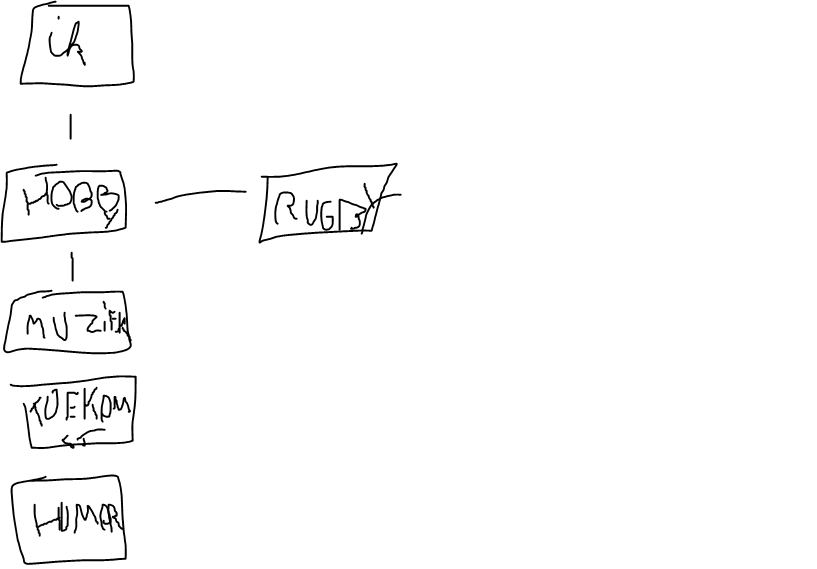 ik
HOBB
y
RUGBY
MUZIEK
TOEKOM
ST
HUMOR